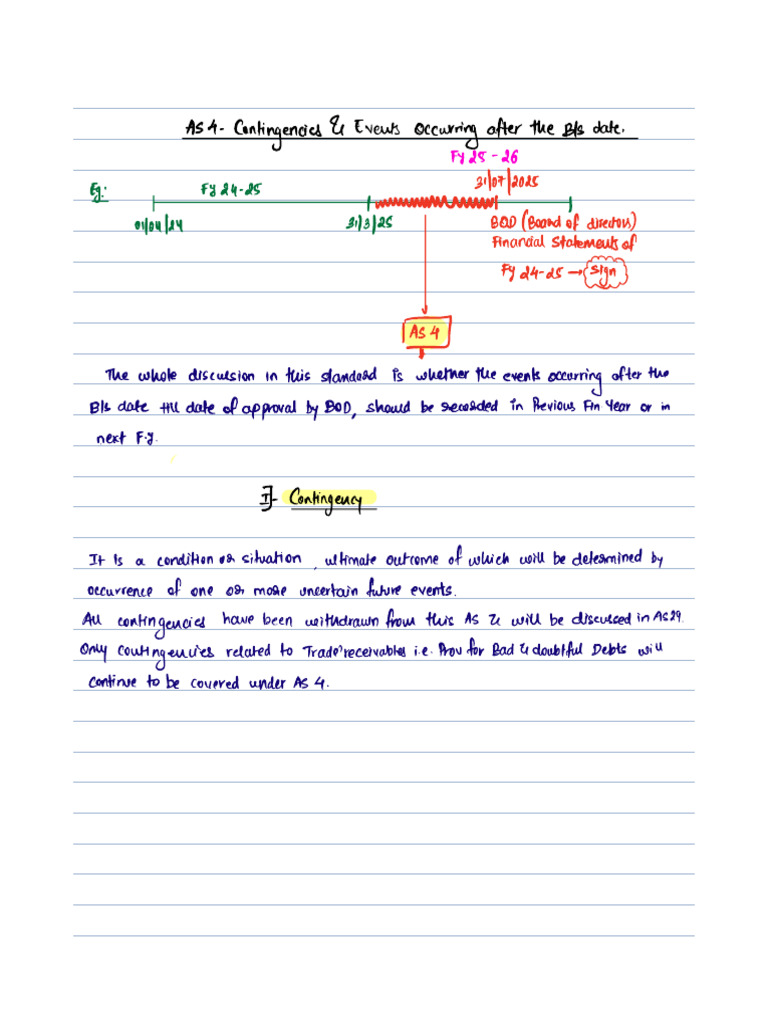 AS 4 - Contingencies & Events Occurring after the B/s date.
FY 25 - 26
31/07/2025
Eg:
FY 24-25
01/04/24
31/3/25
BOD (Board of directors)
Financial Statements of
FY 24-25 → Sign
AS 4
The whole discussion in this standard is whether the events occurring after the
B/s date till date of approval by BOD, should be recorded in Previous Fin Year or in
next F.y.
I]- Contingency
It is a condition or situation, ultimate outcome of which will be determined by
occurrence of one or more uncertain future events.
All contingencies have been withdrawn from this AS & will be discussed in AS29.
Only contingencies related to Trade receivables i.e. Prov for Bad & doubtful Debts will
continue to be covered under AS 4.